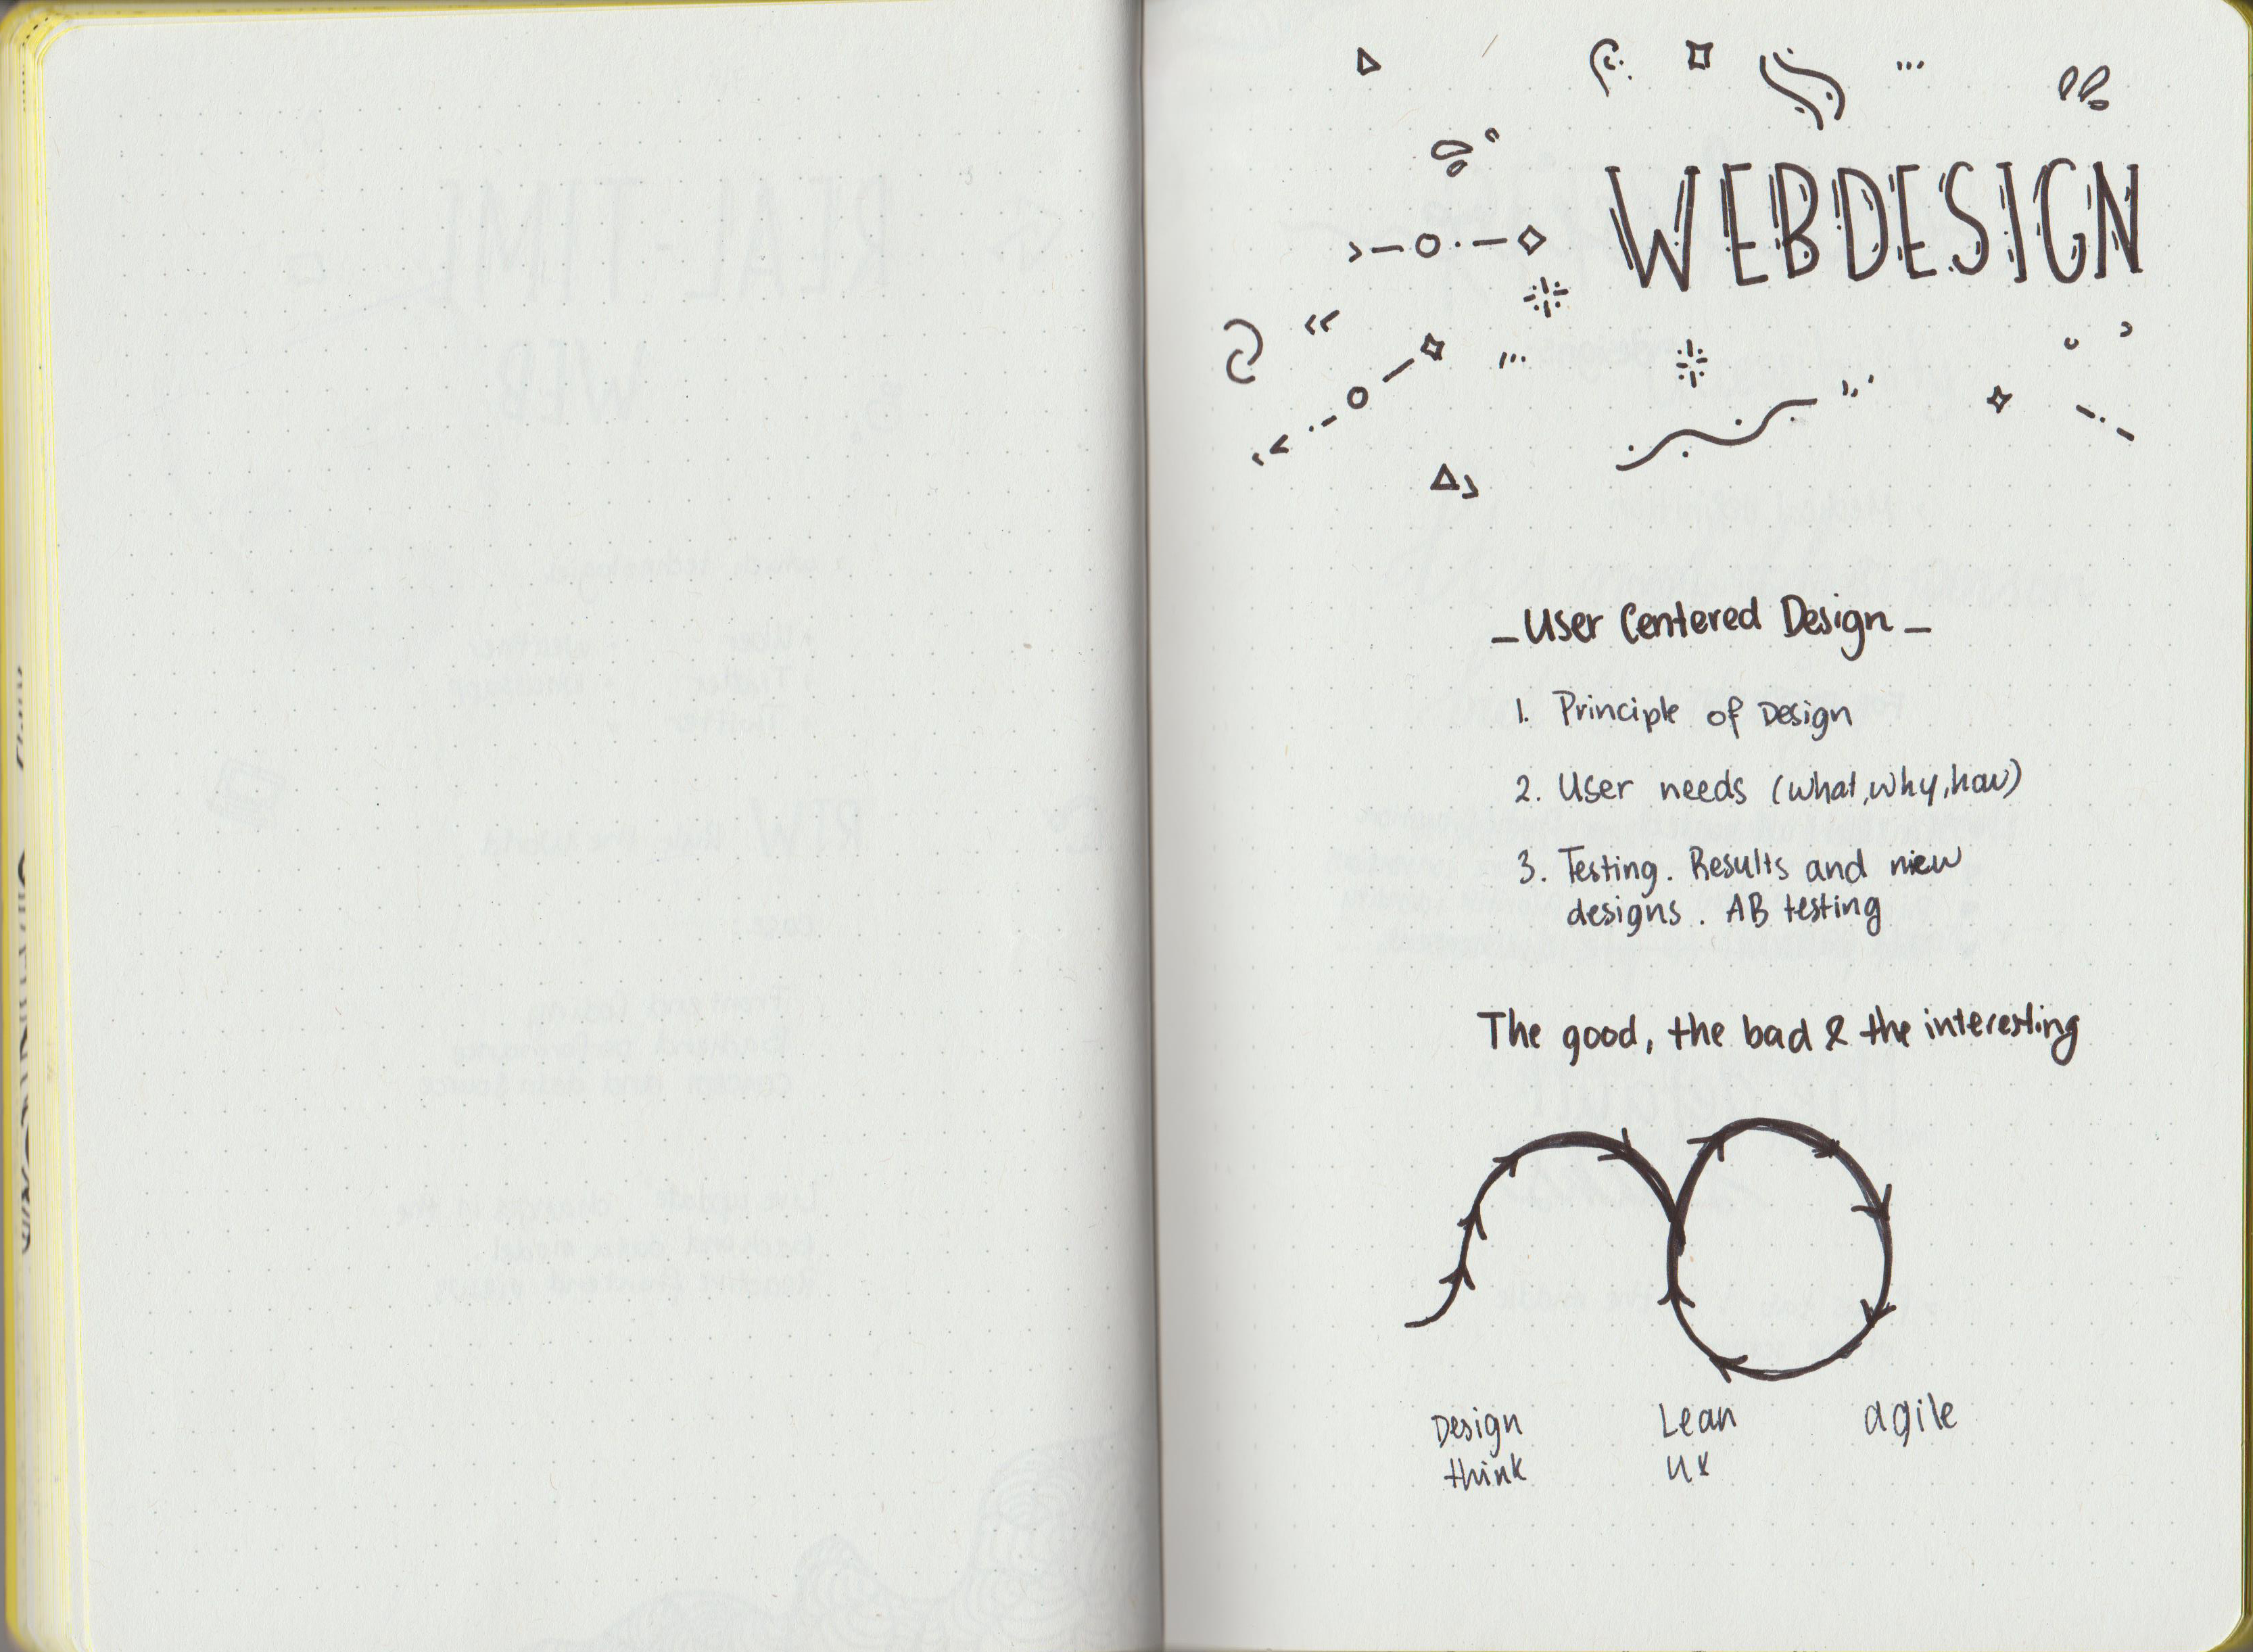 WEBDESIGN
_ User Centered Design _
1. Principle of Design
2. User needs (what, why, how)
3. Testing. Results and niew
designs. AB testing
The good, the bad & the interesting
Design
think
Lean
UX
agile
REAL-TIME
WEB
RTW Rule the World
case: